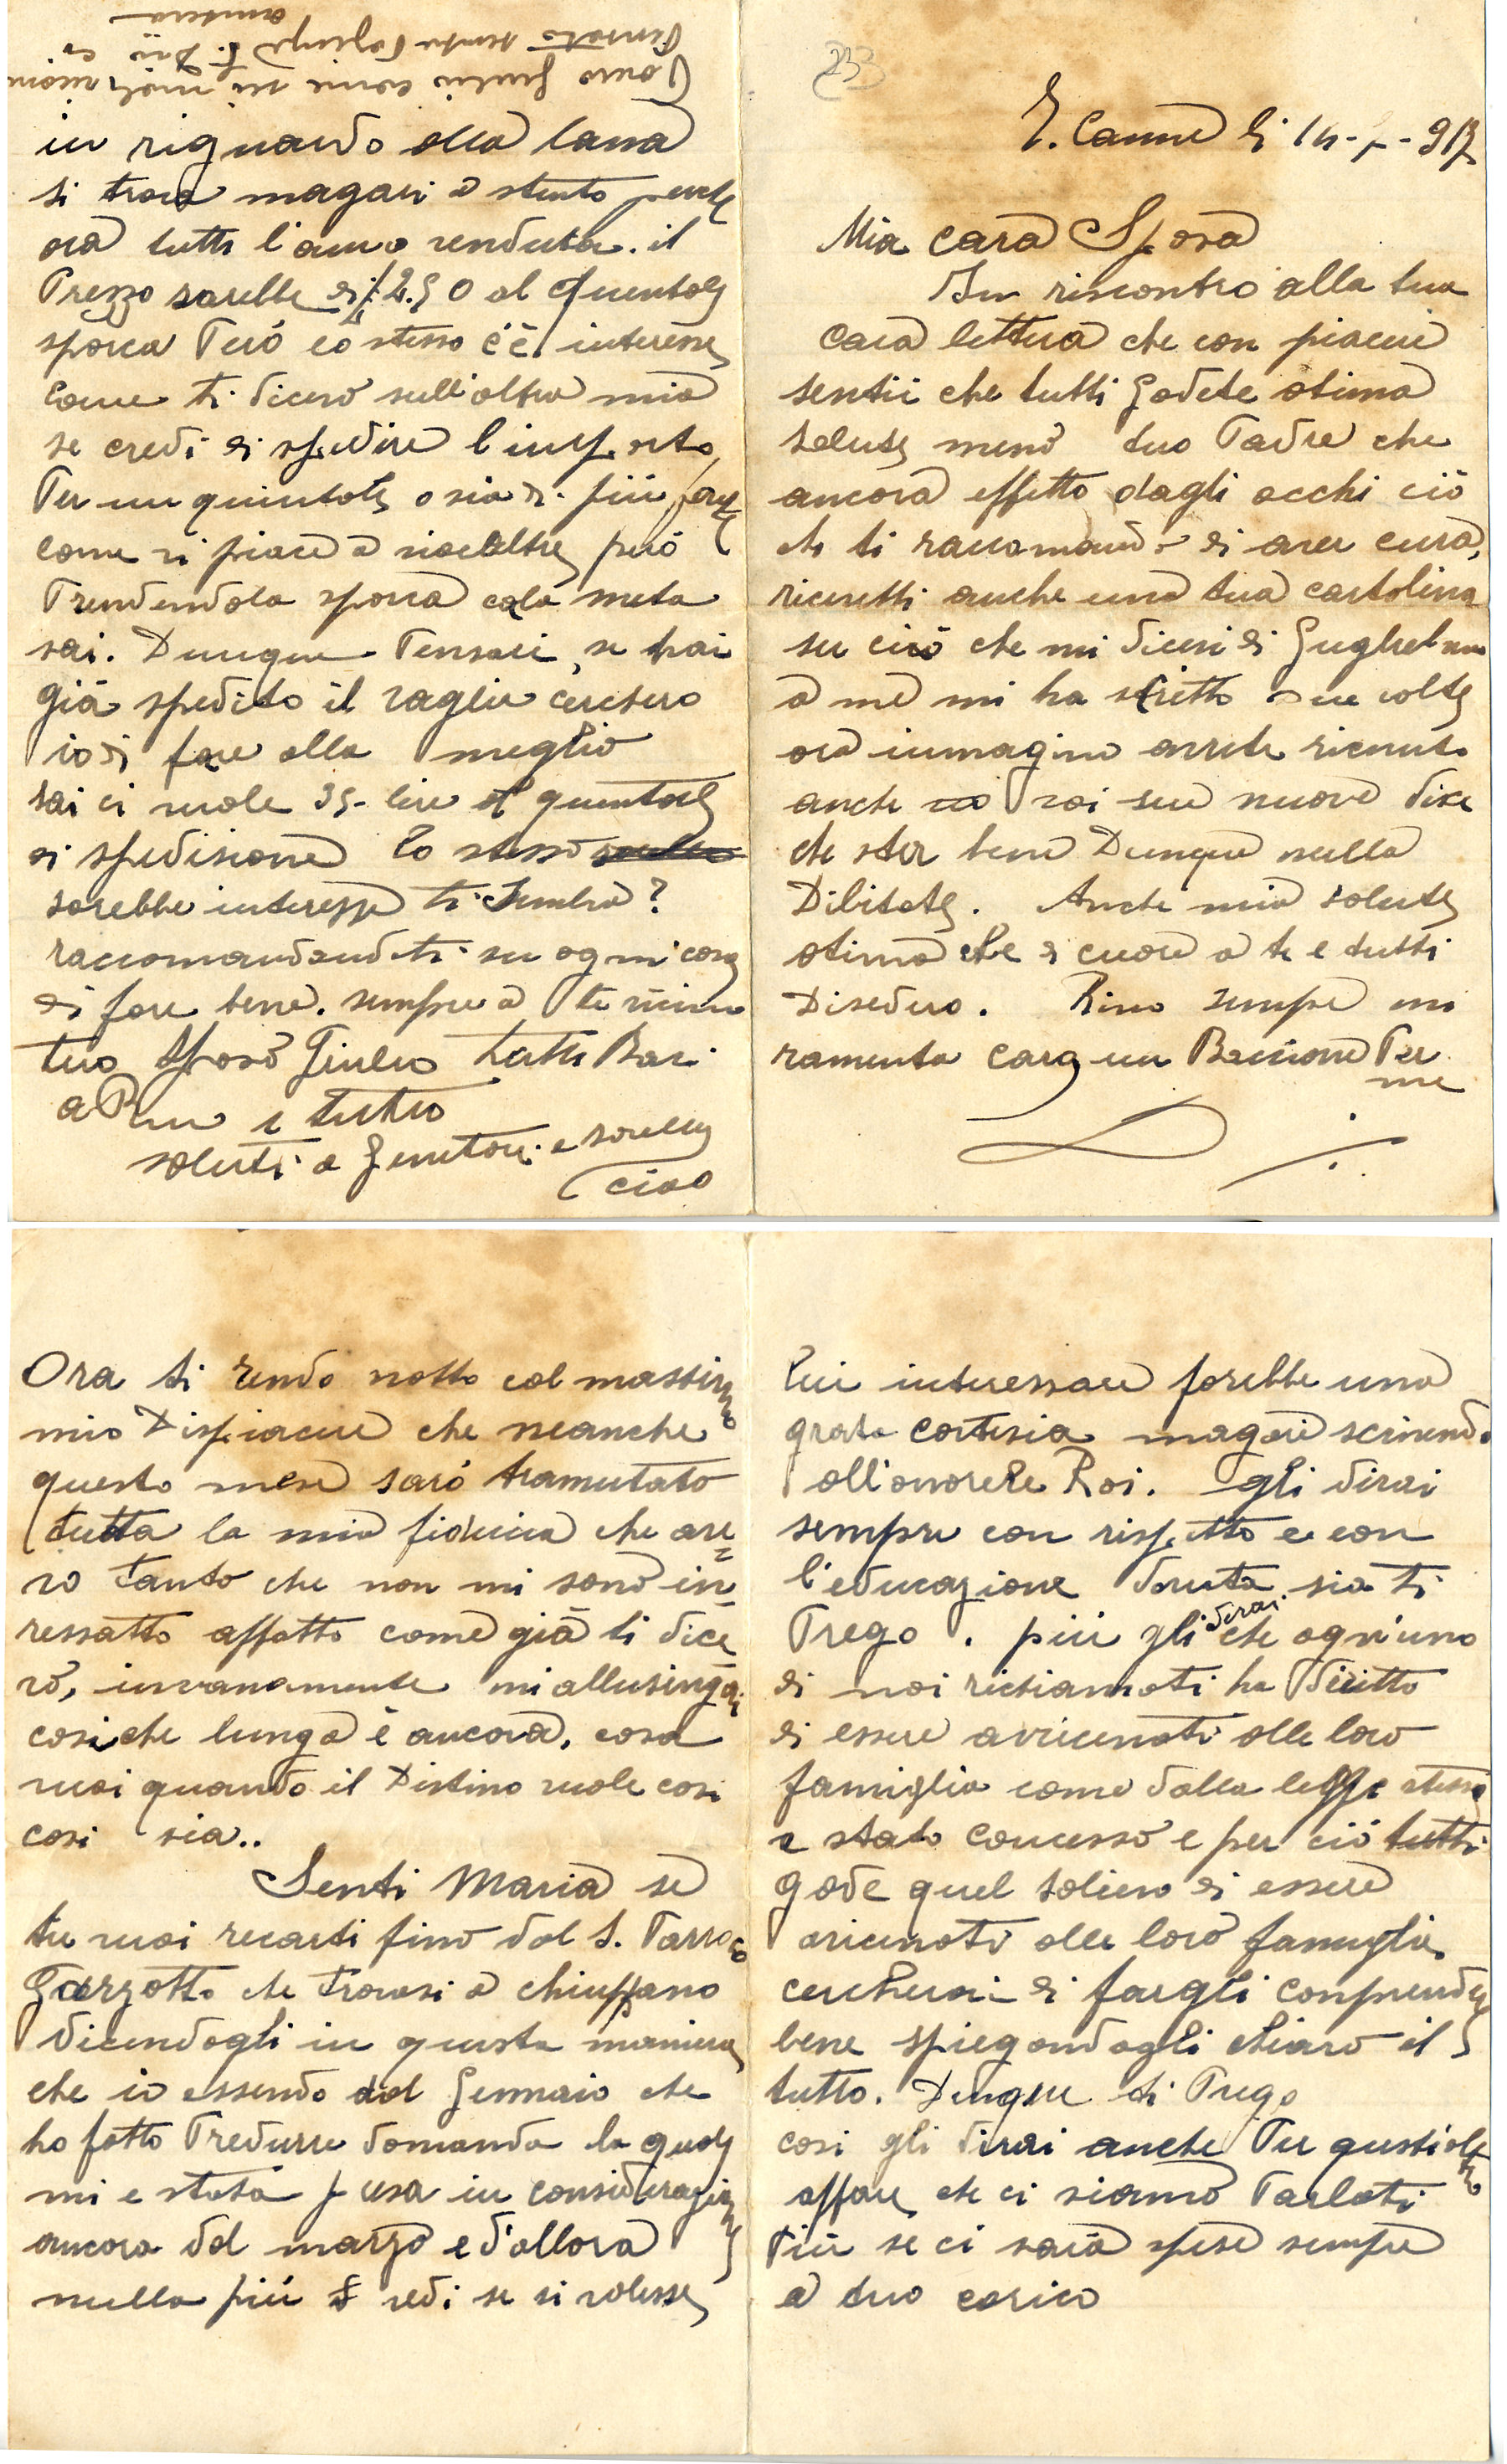 233
T. Canne li 14-5-917
Mia cara Sposa
In riscontro alla tua
cara lettera che con piacere
sentii che tutti godete otima
salute meno tuo Padre che
ancora effetto dagli occhi ciò
che ti raccomando di aver cura,
ricevetti anche una tua cartolina
su ciò che mi dicevi di Guglielmo
a me mi ha scritto due volte
ora immagino avrete ricevuto
anche voi sue nuove dice
che ster bene Dunque nulla
Dibitate. Anche mia salute
otima che di cuore a te e tutti
Disedero. Rino sempre mi
ramenta cara un Bacione Per
me
Ora ti rendo notto col massimo
mio Dispiacere che neanche
questo mese sarò tramutato
tutta la mia fiducia che ave=
vo tanto che non mi sono in=
ressatto affatto come già ti dice
vo, invanamente mi allusingai
cosi che lunga è ancora, cosa
vuoi quando il Distino vuole cosi
cosi sia..
Senti Maria se
tu vuoi recarti fino dal S. Parroco
Garzotto che trovasi a Chiuppano
Dicendogli in questa maniera
che io essendo dal Gennaio che
ho fatto Predurre domanda la quale
mi e stata presa in considerazione
ancora dal marzo e d'allora
nulla più vedi se si volesse
lui interessare farebbe una
grata cortesia magari scrivendo
all'onorele Roi. gli dirai
sempre con rispetto e con
l'educazione dovuta sia ti
Prego. più gli dirai che ogni'uno
di noi richiamati ha diritto
di essere avvicinati alle loro
famiglia come dalla legge stessa
e stato concesso e per ciò tutti
gode quel solievo di essere
avicinati alle loro famiglie
cercherai di fargli conprendere
bene spiegandogli chiaro il
tutto. Dunque ti Prego
cosi gli dirai anche Per questi altro
affare che ci siamo Parlati
Più se ci sarà spese sempre
a tuo carico
in riguardo alla lana
si trova magari a stento perche
ora tutti l'anno venduta. il
Prezzo sarebbe di £ 2.50 al quintale
sporca Però lo stesso c'è interesse
come ti dicevo sull'altra mia
se credi di spedire l'importo
Per un quintale o sia di più
come vi piace a voialtre però
Prendendola sporca cala meta
sai. Dunque Pensaci, se hai
già spedito il vaglia cerchero
io di fare alla meglio
sai ci vuole 35- lire al quintale
di spedisione Lo stesso
sarebbe interesse ti sembra?
raccomandandoti su ogni cosa
di fare bene. sempre a te vicino
tuo Sposo Giulio tutti Baci
a Rino e tutto
saluti a Genitori e sorelle
ciao